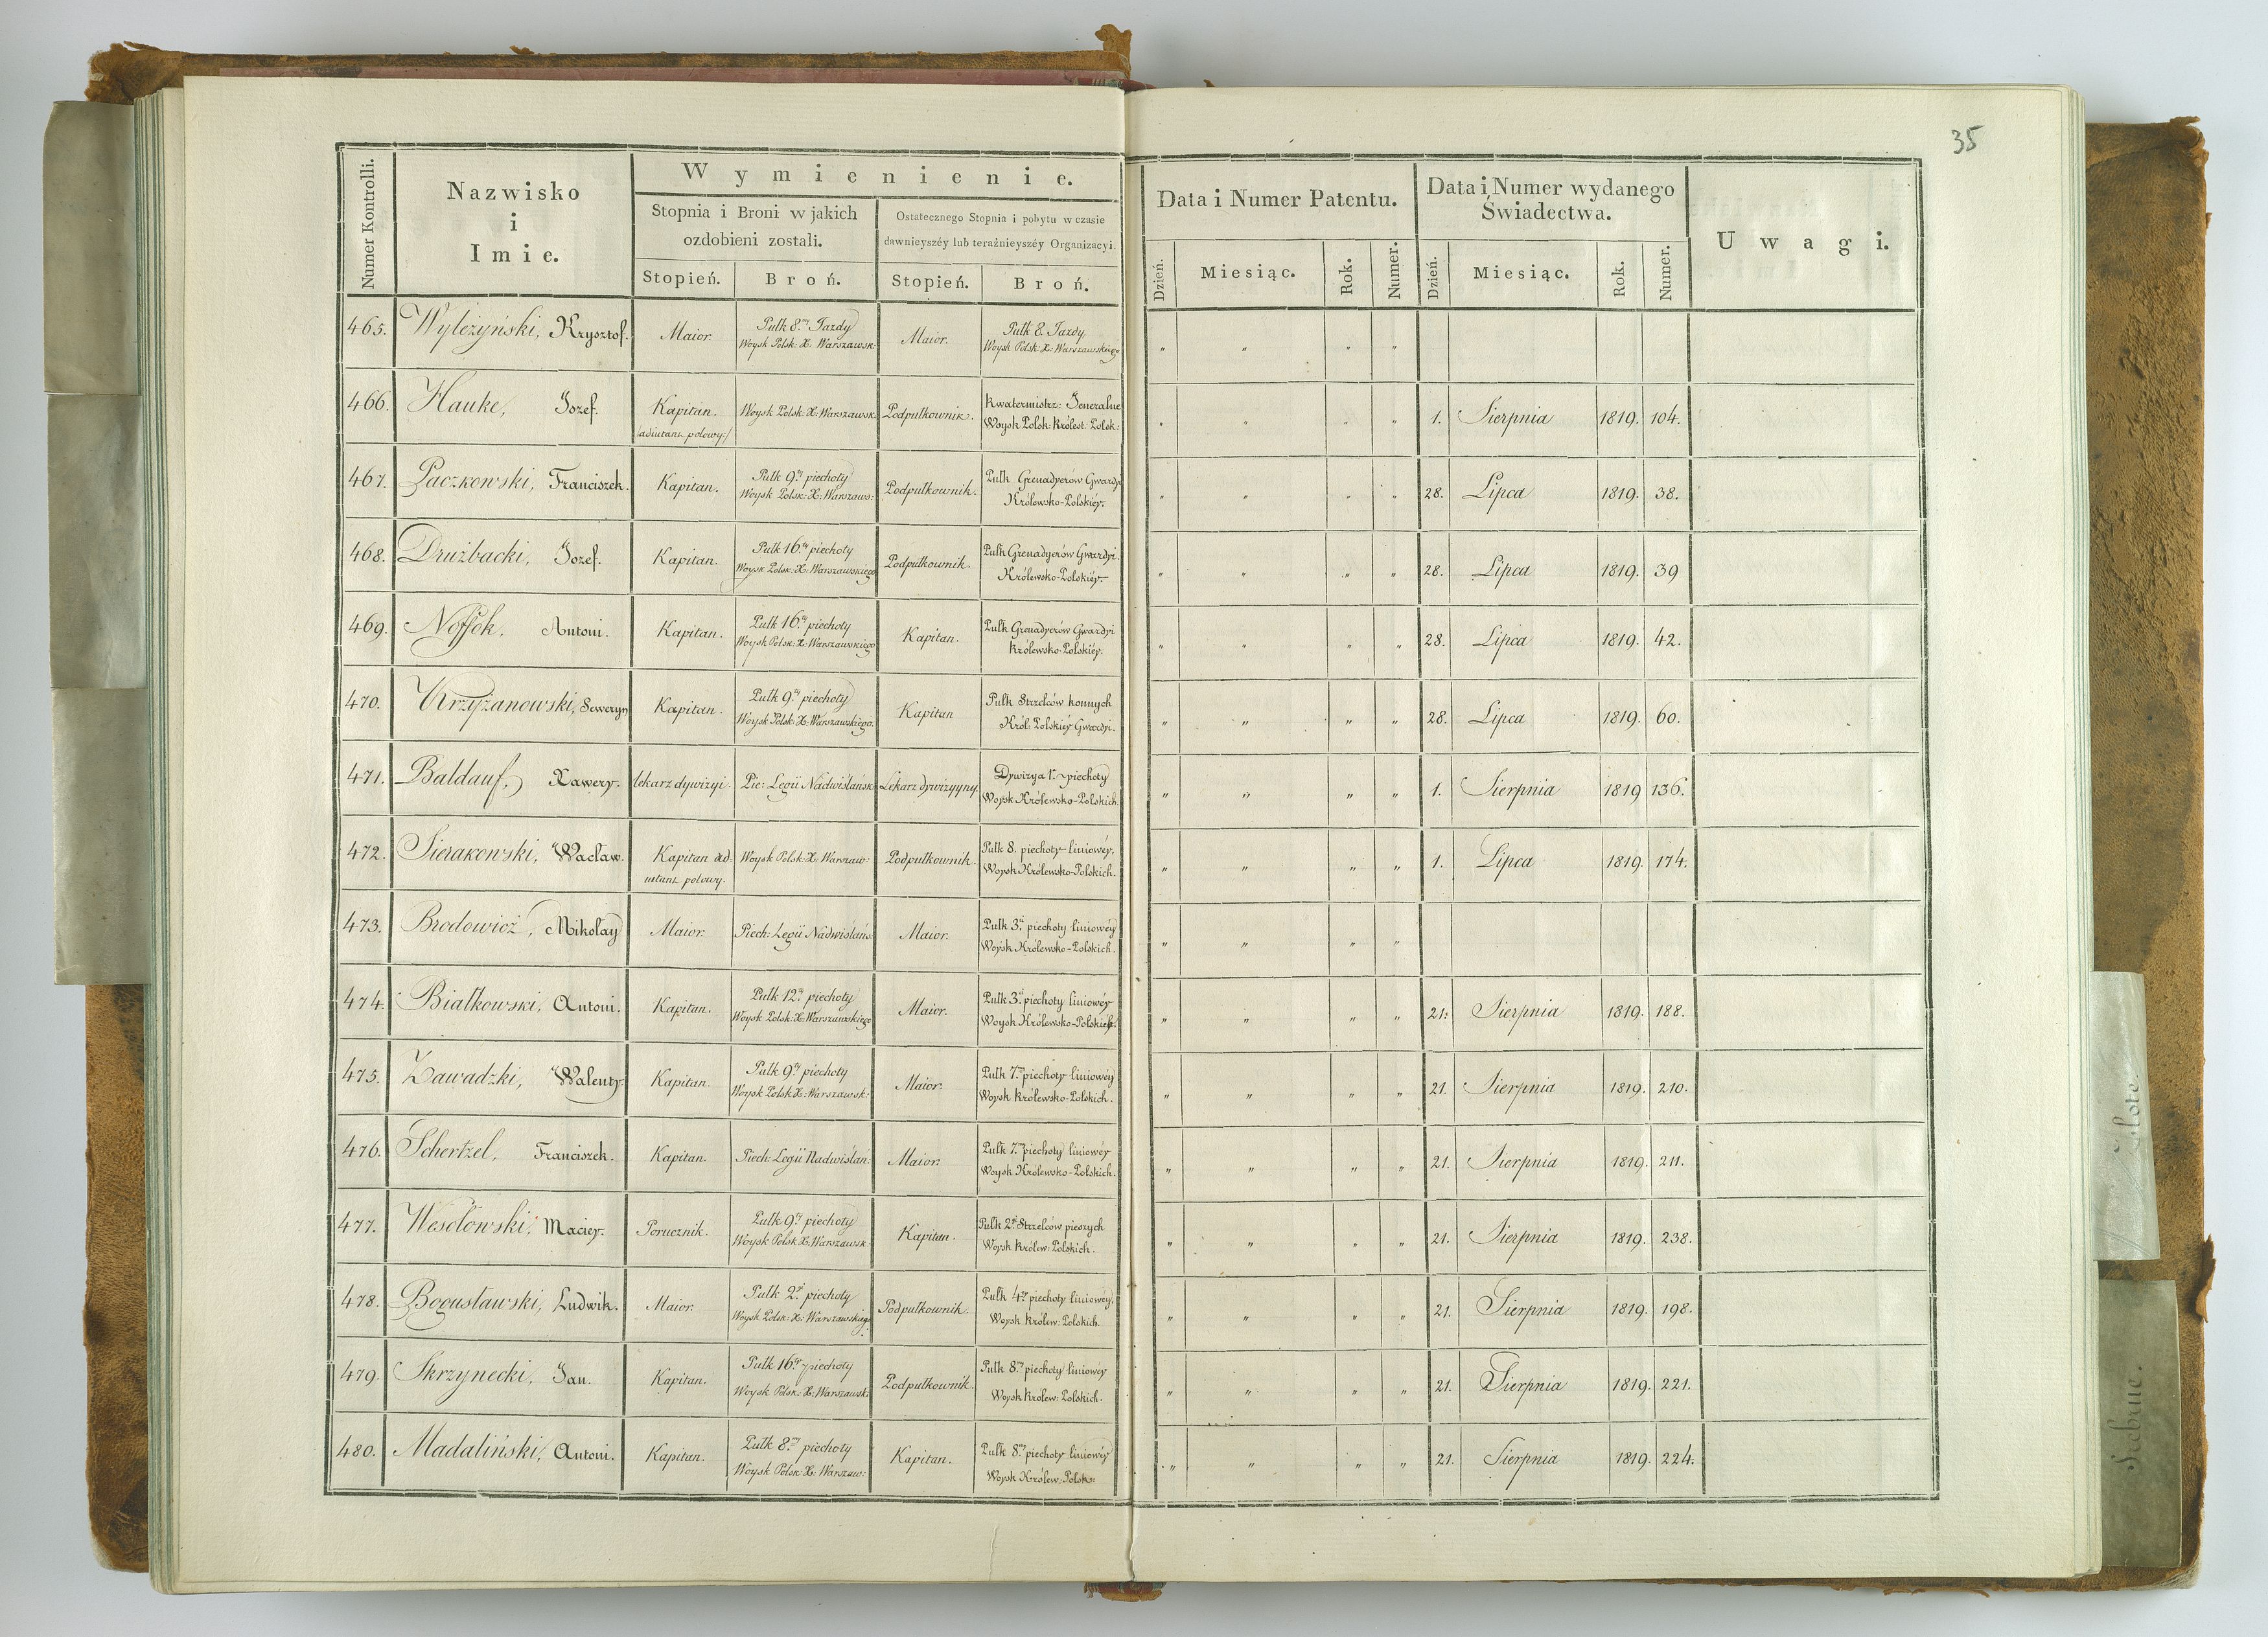 35
Numer Kontrolli.
Nazwisko
i
Imie.
Wymienienie.
Stopnia i Broni w jakich
ozdobieni zostali.
Ostatecznego Stopnia i pobytu w czasie
dawnieyszéy lub teraźnieyszéy Organizacyi.
Stopień. Broń. Stopień. Broń.
Data i Numer Patentu.
Dzień. Miesiąc. Rok. Numer.
Data i Numer wydanego
Świadectwa.
Dzień. Miesiąc. Rok. Numer.
Uwagi.
465. Wyleżyński, Krysztof. Maior. Pułk 8. Jazdy Woysk Polsk: X: Warszawsk: Maior. Pułk 8. Jazdy Woysk Polsk: X: Warszawskiego " " " "
466. Hauke, Jozef. Kapitan. /adiutant polowy:/ Woysk Polsk: X: Warszawsk: Podpułkownik. Kwatermistrz: Jeneralne Woysk Polsk: Królest: Polsk: " " " " 1. Sierpnia 1819. 104.
467. Paczkowski, Franciszek. Kapitan. Pułk 9. piechoty Woysk Polsk: X: Warszaws: Podpułkownik. Pułk Grenadyerów Gwardyi Królewsko-Polskiéy. " " " " 28. Lipca 1819. 38.
468. Drużbacki, Jozef. Kapitan. Pułk 16. piechoty Woysk Polsk: X: Warszawskiego Podpułkownik. Pułk Grenadyerów Gwardyi. Królewsko-Polskiéy. " " " " 28. Lipca 1819. 39
469. Nossok, Antoni. Kapitan. Pułk 16. piechoty Woysk Polsk: X: Warszawskiego Kapitan. Pułk Grenadyerów Gwardyi Królewsko-Polskiéy. " " " " 28. Lipca 1819. 42.
470. Krzyżanowski, Seweryn Kapitan. Pułk 9. piechoty Woysk Polsk: X: Warszawskiego. Kapitan Pułk Strzelców konnych Król: Polskiéy Gwardyi. " " " " 28. Lipca 1819. 60.
471. Baldauf, Xawery. lekarz dywizyi. Pie: Legii Nadwislańsk: Lekarz dywizyyny. Dywizya 1. piechoty Woysk Królewsko-Polskich. " " " " 1. Sierpnia 1819 136.
472. Sierakowski, Wacław. Kapitan ad- iutant polowy. Woysk Polsk: X: Warszaw: Podpułkownik. Pułk 8. piechoty liniowéy. Woysk Królewsko-Polskich. " " " " 1. Lipca 1819. 174.
473. Brodowicz, Mikołay Maior. Piech: Legii Nadwislańs: Maior. Pułk 3. piechoty liniowéy Woysk Królewsko-Polskich. " " " "
474. Białkowski, Antoni. Kapitan. Pułk 12. piechoty Woysk Polsk: X: Warszawskiego Maior. Pułk 3. piechoty liniowéy Woysk Królewsko-Polskich. " " " " 21. Sierpnia 1819. 188.
475. Zawadzki, Walenty. Kapitan. Pułk 9. piechoty Woysk Polsk X: Warszawsk: Maior. Pułk 7. piechoty liniowéy Woysk Królewsko-Polskich. " " " " 21. Sierpnia 1819. 210.
476. Schertzel, Franciszek. Kapitan. Piech: Legii Nadwislan: Maior. Pułk 7. piechoty liniowéy Woysk Królewsko-Polskich. " " " " 21. Sierpnia 1819. 211.
477. Wesołowski, Maciey. Porucznik. Pułk 9. piechoty Woysk Polsk X: Warszawsk: Kapitan. Pułk 2. Strzelców pieszych Woysk Królew: Polskich. " " " " 21. Sierpnia 1819. 238.
478. Bogusławski, Ludwik. Maior. Pułk 2. piechoty Woysk Polsk: X: Warszawskiego Podpułkownik. Pułk 4. piechoty liniowéy. Woysk Królew: Polskich. " " " " 21. Sierpnia 1819. 198.
479. Skrzynecki, Jan. Kapitan. Pułk 16. piechoty Woysk Polsk: X: Warszawsk: Podpułkownik. Pułk 8. piechoty liniowéy Woysk Królew: Polskich. " " " " 21. Sierpnia 1819. 221.
480. Madaliński, Antoni. Kapitan. Pułk 8. piechoty Woysk Polsk: X: Warszaw: Kapitan. Pułk 8. piechoty liniowéy Woysk Królew: Polsk: " " " " 21. Sierpnia 1819. 224.
Złote.
Srebrne.